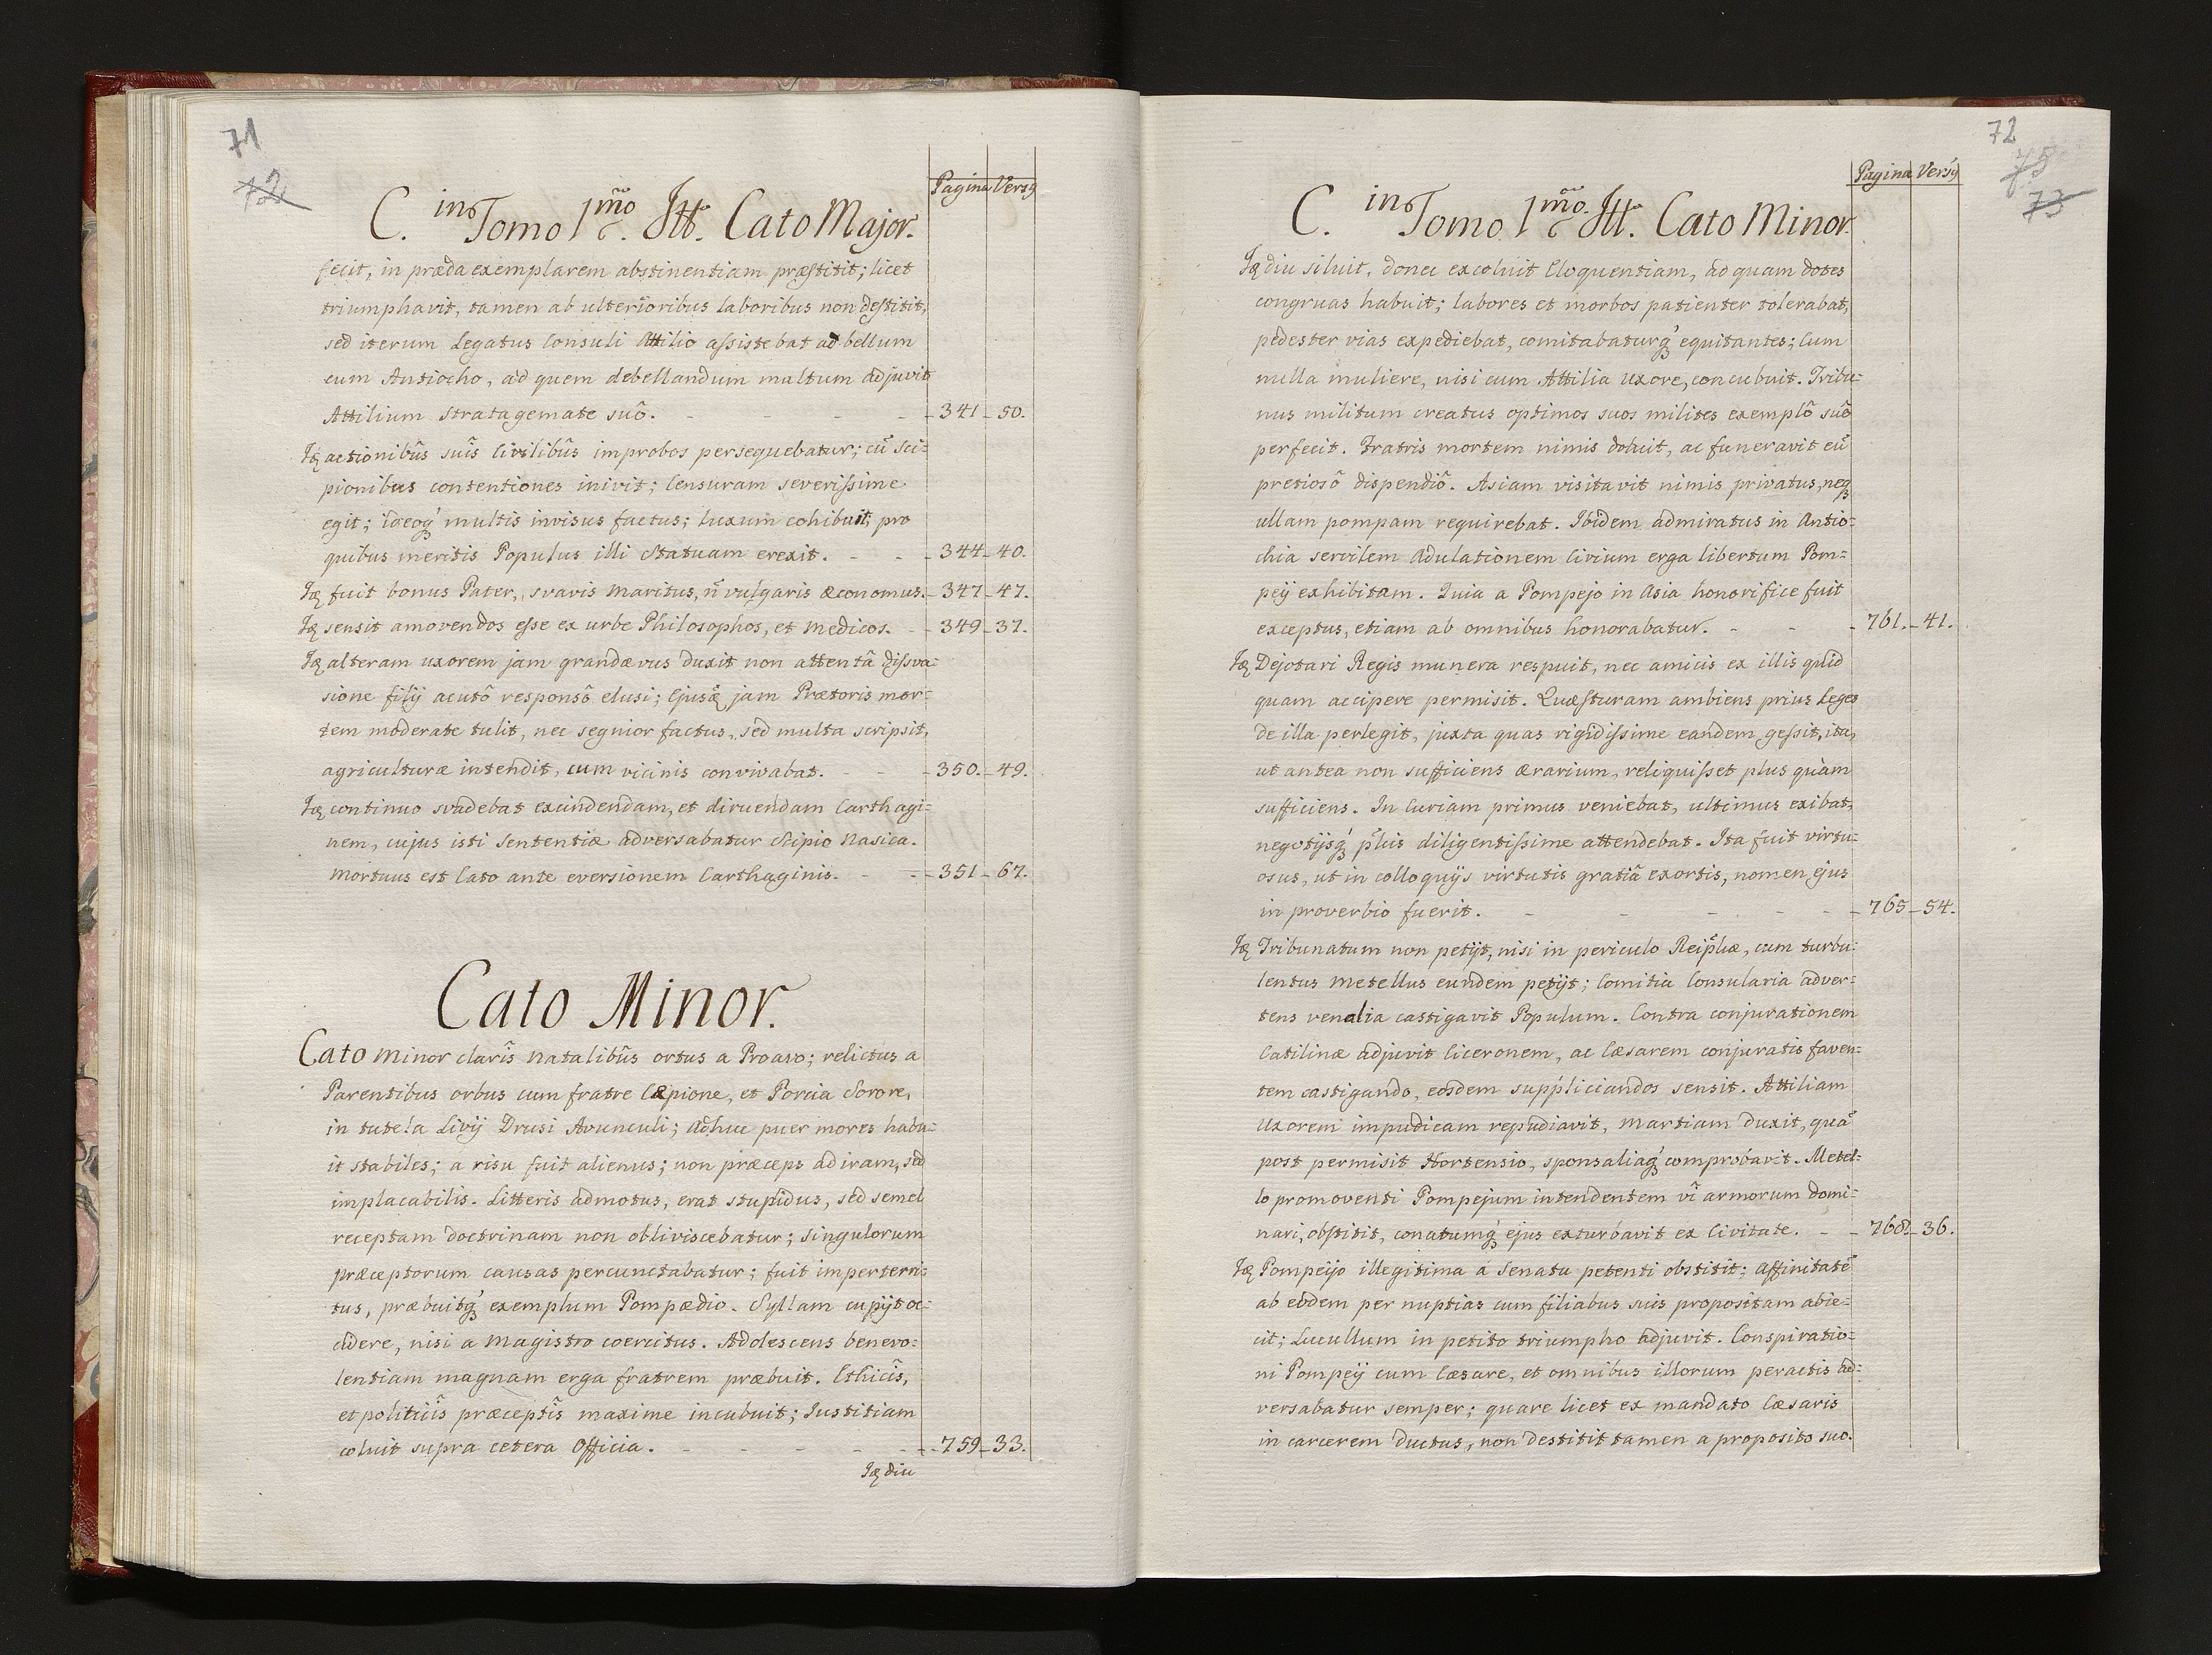 71
72
Pagina Versꝯ
C. in Tomo 1mo. Itt. Cato Major.
fecit, in præda exemplarem abstinentiam præstitit; licet
triumphavit, tamen ab ulterioribus laboribus non destitit,
sed iterum Legatus Consuli Attilio assistebat ad bellum
cum Antiocho, ad quem debellandum multum adjuvit
Attilium stratagemate suô. - - - - 341 - 50.
Iꝗ actionibûs suîs Civilibûs improbos persequebatur; cũ Sci=
pionibus contentiones inivit; Censuram severissime
egit; ideoq́ multis invisus factus; luxum cohibuit, pro
quibus meritis Populus illi Statuam erexit. - - 344 - 40.
Iꝗ fuit bonus Pater, svavis Maritus, ñ vulgaris œconomus. - 347 - 47.
Iꝗ sensit amovendos esse ex urbe Philosophos, et Medicos. - 349 - 37.
Iꝗ alteram uxorem jam grandævus duxit non attentâ dissva=
sione filij acutô responsô elusi; Ejusꝗ jam Prætoris mor=
tem moderate tulit, nec segnior factus, sed multa scripsit,
agriculturæ intendit, cum vicinis convivabat. - - 350. - 49.
Iꝗ continuo svadebat excindendam, et diruendam Carthagi=
nem, cujus isti Sententiæ adversabatur Scipio Nasica.
Mortuus est Cato ante eversionem Carthaginis. - - 351 - 67.
Cato Minor.
Cato Minor clarîs Natalibûs ortus a Proavo; relictus a
Parentibus orbus cum fratre Cæpione, et Porcia Sorore,
in tutela Livij Drusi Avunculi; adhuc puer mores habu=
it stabiles; a risu fuit alienus; non præceps ad iram, sed
implacabilis. Litteris admotus, erat stupidus, sed semel
receptam doctrinam non obliviscebatur; singulorum
præceptorum causas percunctabatur; fuit imperterri=
tus, præbuitq́ exemplum Pompædio. Syllam cupijt oc=
cidere, nisi a Magistro coercitus. Adolescens benevo=
lentiam magnam erga fratrem præbuit. Ethicîs,
et politicîs præceptîs maxime incubuit; Iustitiam
coluit supra cetera Officia. - - - - - 759 - 33.
Iꝗ diu
72
75
73
Pagina Versꝯ
C. in Tomo 1mo. Itt. Cato Minor.
Iꝗ diu siluit, donec excoluit Eloquentiam, ad quam dotes
congruas habuit; labores et morbos patienter tolerabat,
pedester vias expediebat, comitabaturq́ equitantes; Cum
nulla muliere, nisi cum Attilia Uxore, concubuit. Tribu=
nus militum creatus optimos suos milites exemplô suô
perfecit. Fratris mortem nimis doluit, ac funeravit eũ
pretiosô dispendiô. Asiam visitavit nimis privatus, neq́
ullam pompam requirebat. Ibidem admiratus in Antio=
chia servilem adulationem Civium erga libertum Pom=
peij exhibitam. Quia a Pompejo in Asia honorifice fuit
exceptus, etiam ab omnibus honorabatur. - - - 761. - 41.
Iꝗ Dejotari Regis munera respuit, nec amicis ex illis quid
quam accipere permisit. Quæsturam ambiens prius Leges
de illa perlegit, juxta quas rigidissime eandem gessit, ita,
ut antea non sufficiens ærarium, reliquisset plus quàm
sufficiens. In Curiam primus veniebat, ultimus exibat,
negotijsq́ plũs diligentissime attendebat. Ita fuit virtu=
osus, ut in colloquijs virtutis gratiâ exortis, nomen ejus
in proverbio fuerit. - - - - - 765 - 54.
Iꝗ Tribunatum non petijt, nisi in periculo Reip̃licæ, cum turbu=
lentus Metellus eundem petijt; Comitia Consularia adver=
tens venalia castigavit Populum. Contra conjurationem
Catilinæ adjuvit Ciceronem, ac Cæsarem conjuratis faven=
tem castigando, eosdem suppliciandos sensit. Attiliam
Uxorem impudicam repudiavit, Martiam duxit, quã
post permisit Hortensio, sponsaliaq́ comprobavit. Metel=
lo promoventi Pompejum intendentem vî armorum domi=
nari, obstitit, conatumq́ ejus exturbavit ex Civitate. - - 768. - 36.
Iꝗ Pompeijo illegitima á Senatu petenti obstitit; affinitatẽ
ab eodem per nuptias cum filiabus suis propositam abie=
cit; Lucullum in petito triumpho adjuvit. Conspiratio=
ni Pompeij cum Cæsare, et omnibus illorum peractis ad=
versabatur semper; quare licet ex mandato Cæsaris
in carcerem ductus, non destitit tamen a proposito suo.